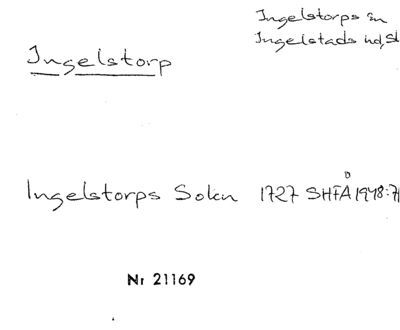 Ingelstorps sn
Ingelstads hd, Sk
Ingelstorp
Ingelstorps Sokn 1727 SHFÅ 1948:71
Nr 21169